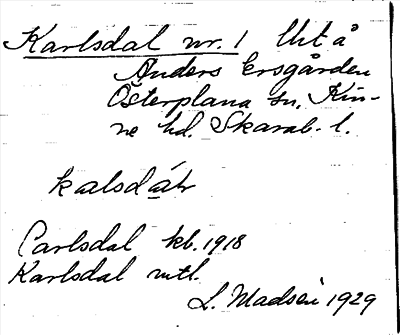 Karlsdal nr. 1 Uht å
Anders Ersgården
Österplana sn. Kin-
ne hd. Skarab. l.
Carlsdal kb. 1918
Karlsdal mtl.
L. Madsén 1929